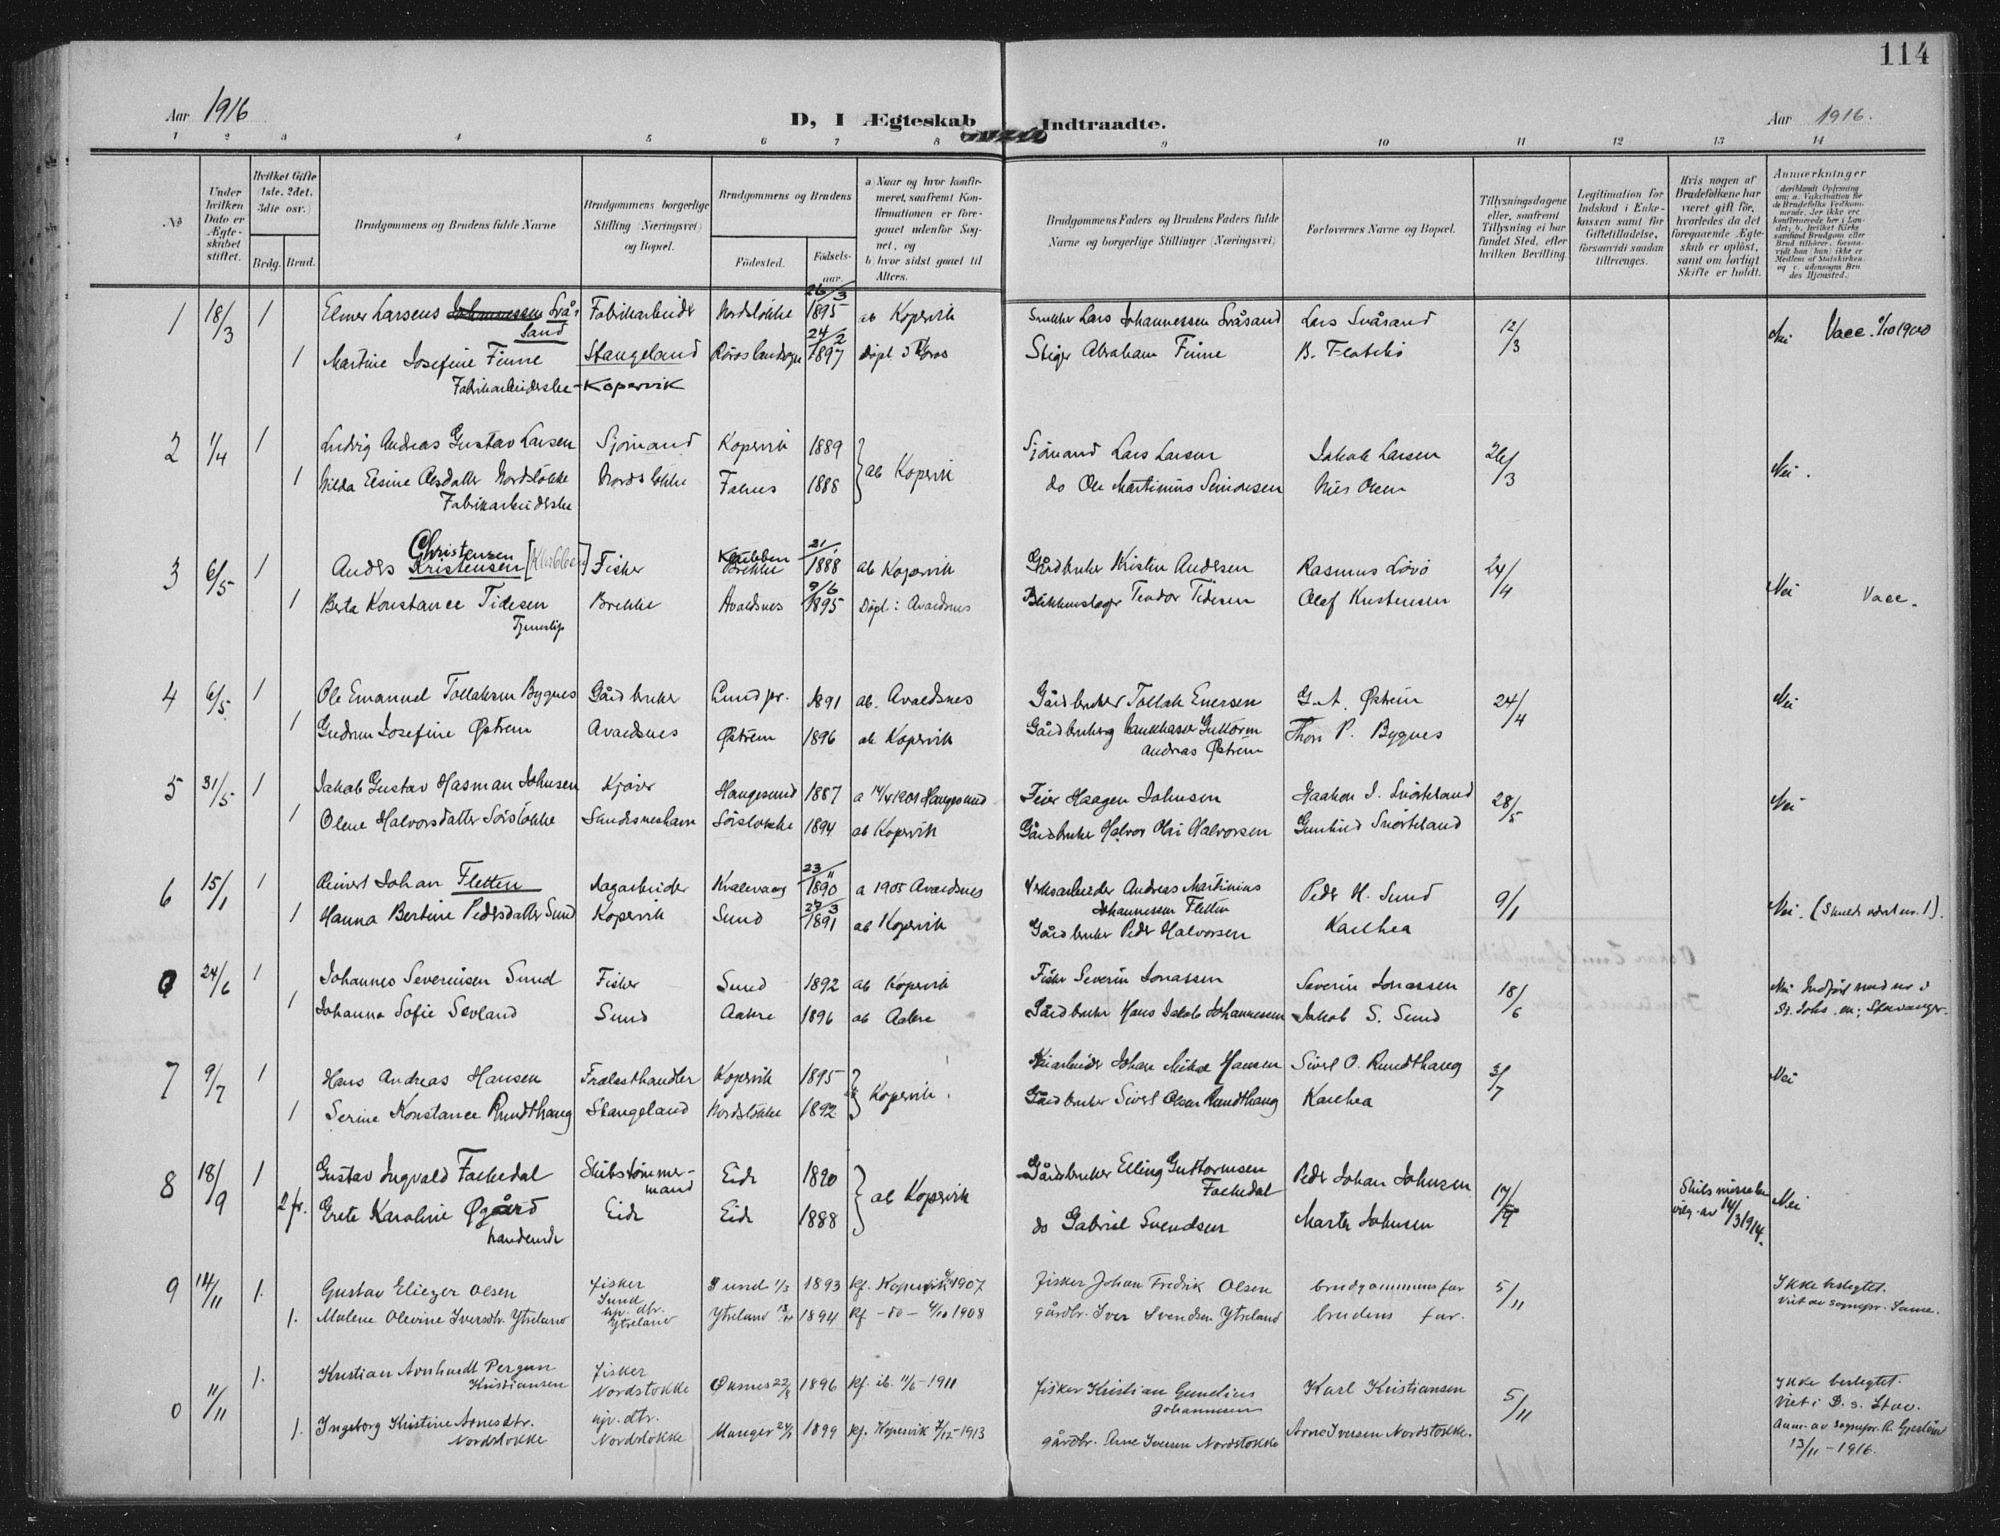 114
Aar 1916
D, I Ægteskab Indtraadte.
Aar 1916.
1 2 3 4 5 6 7 8 9 10 11 12 13 14
№
Under hvilken Dato er Ægteskabet stiftet.
Hvilket Gifte 1ste, 2det, 3die osv.)
Brdg. Brud.
Brudgommens og Brudens fulde Navne
Brudgommens borgerlige Stilling (Næringsvei) og Bopæl.
Brudgommens og Brudens
Fødested. Fødselsaar.
a) Naar og hvor konfirmeret, saafremt Konfirmationen er foregaaet udenfor Sognet, og
b) hvor sidst gaaet til Alters.
Brudgommens Faders og Brudens Faders fulde Navne og borgerlige Stillinger (Næringsvei)
Forlovernes Navne og Bopæl.
Tillysningsdagene eller, saafremt Tillysning ei har fundet Sted, efter hvilken Bevilling.
Legitimation for Indskud i Enkekassen samt for Giftetilladelse, forsaavidt saadan tiltrænges.
Hvis nogen af Brudefolkene har været gift før, hvorledes da det foregaaende Ægteskab er opløst, samt om lovligt Skifte er holdt.
Anmærkninger
1 18/3 1 Elmer Larsens Svåsand Fabrikarbeider Nordstokke 26/3 1895 ab Kopervik Lars Johannessen Svåsand Lars Svåsand 12/3 Nei Vacc. 1900
1 Martine Josefine Finne Stangeland Røros landsogn 24/2 1897 Døpt i Røros Stiger Abraham Finne
Fabrikarbeiderske - Kopervik
2 1/4 1 Ludvig Andreas Gustav Larsen Sjømand Kopervik 1889 ab Kopervik Sjømand Lars Larsen Jakob Larsen 26/3 Nei.
1 Hilda Elsine Olsdatter Nordstokke Nordstokke Falnes 1888 do Ole Martinius Simonsen Nils Olsen
Fabrikarbeiderske
3 6/5 1 Anders Christensen Kristensen [Klubben] Fisker Klubben Brekke 21/1 1888 ab Kopervik Gårdbruker Kristen Andersen Rasmus Lovø 24/4 Nei Vacc.
1 Berta Konstance Tidesen Brekke Avaldsnes 9/6 1895 Døpt i Avaldsnes Blikkenslager Teodor Tidesen Olaf Kristensen
4 6/5 1 Ole Emanuel Tollaksen Bygnes Gårdbruker 1891 ab. Avaldsnes Gårdbruker Tollak Enersen G. A. Østrem 24/4 Nei
1 Gudrun Josefine Østrem Avaldsnes Østrem 1896 ab Kopervik Gårdbruker Guttorm Andreas Østrem Thom P. Bygnes
5 31/5 1 Jakob Gustav Hasman Johnsen Haugesund 1887 a 14/4 1901 Haugesund Haagen Johnsen Haakon J. Snørteland 28/5 Nei
1 Olene Halvorsdatter Sørstokke Sørstokke 1894 ab Kopervik Gårdbruker Halvor Halvorsen Snørteland
6 15/1 1 Johan Fletten Dagarbeider Kvalevaag 23/11 1890 a 1905 Avaldsnes Andreas Martinius Johannessen Fletten Peder H. Sund 9/1 Nei. (Skulde været nr. 1).
1 Hanna Bertine Pedersdatter Sund Kopervik Sund 27/3 1891 ab Kopervik Gårdbruker Peder Halvorsen
24/6 1 Johannes Severinsen Sund Fisker Sund 1892 ab Kopervik Fisker Severin Jonassen Severin Jonassen 18/6 Nei Indført med nr i St. Johs. m; Stavanger.
1 Johanna Sofie Sevland Sund Aakre 1896 ab Aakre Gårdbruker Hans Jakob Johannessen Jakob S. Sund
7 9/7 1 Hans Andreas Hansen Stangeland Kopervik 1895 Kopervik Johan Mikal Hansen Sivert O. Rundthaug 3/7 Nei
1 Serine Konstance Rundthaug Nordstokke 1892 Gårdbruker Sivert Olsen Rundthaug
8 18/9 1 Gustav Ingvald Falkedal Skibstømmermand Eide 1890 ab Kopervik Gårdbruker Elling Guttormsen Falkedal Peder Johan Johnsen 17/9 Nei
2 fr. Grete Karoline Øgård Eide Eide 1888 do Gabriel Svendsen Johnsen Skilsmissebevilg. av 14/3 1914.
9 14/11 1. Gustav Eliezer Olsen fisker Sund Sund 1/3 1893 kf. Kopervik 1907 fisker Johan Fredrik Olsen brudgommens far 5/11 Ikke beslegtet. Viet av sognepr. Same.
1. Malene Olevine Iversdtr. Ytreland gr. dtr. Ytreland Ytreland 1894 kf - do - 4/10 1908 gårdbr. Iver Svendsen Ytreland brudens far.
0 11/11 1. Kristian Arnhardt Pergun Kristiansen fisker Nordstokke Øksnes 22/8 1896 kf. ib. 11/6-1911 fisker Kristian Gunelius Johannesen Karl Kristiansen 5/11 Ikke beslegtet. Viet i D. s. Stav. Anm. av sognepr. 13/11-1916.
1. Ingeborg Kristine Arnesdtr. Nordstokke gr. dtr. Nordstokke Manger 1899 kf. Kopervik 7/12-1913 gårdbr. Arne Iversen Nordstokke Arne Iversen Nordstokke.